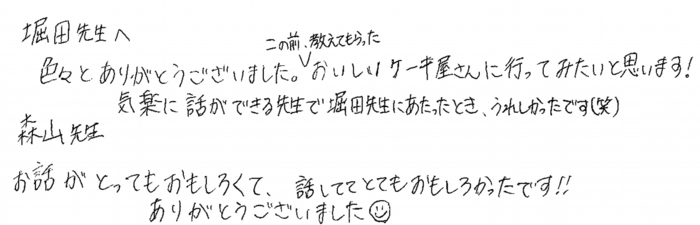 堀田先生へ
この前、教えてもらった
色々とありがとうございました。おいしいケーキ屋さんに行ってみたいと思います!
気楽に話ができる先生で堀田先生にあたったとき、うれしかったです(笑)
森山先生
お話がとってもおもしろくて、話しててとてもおもしろかったです!!
ありがとうございました☺